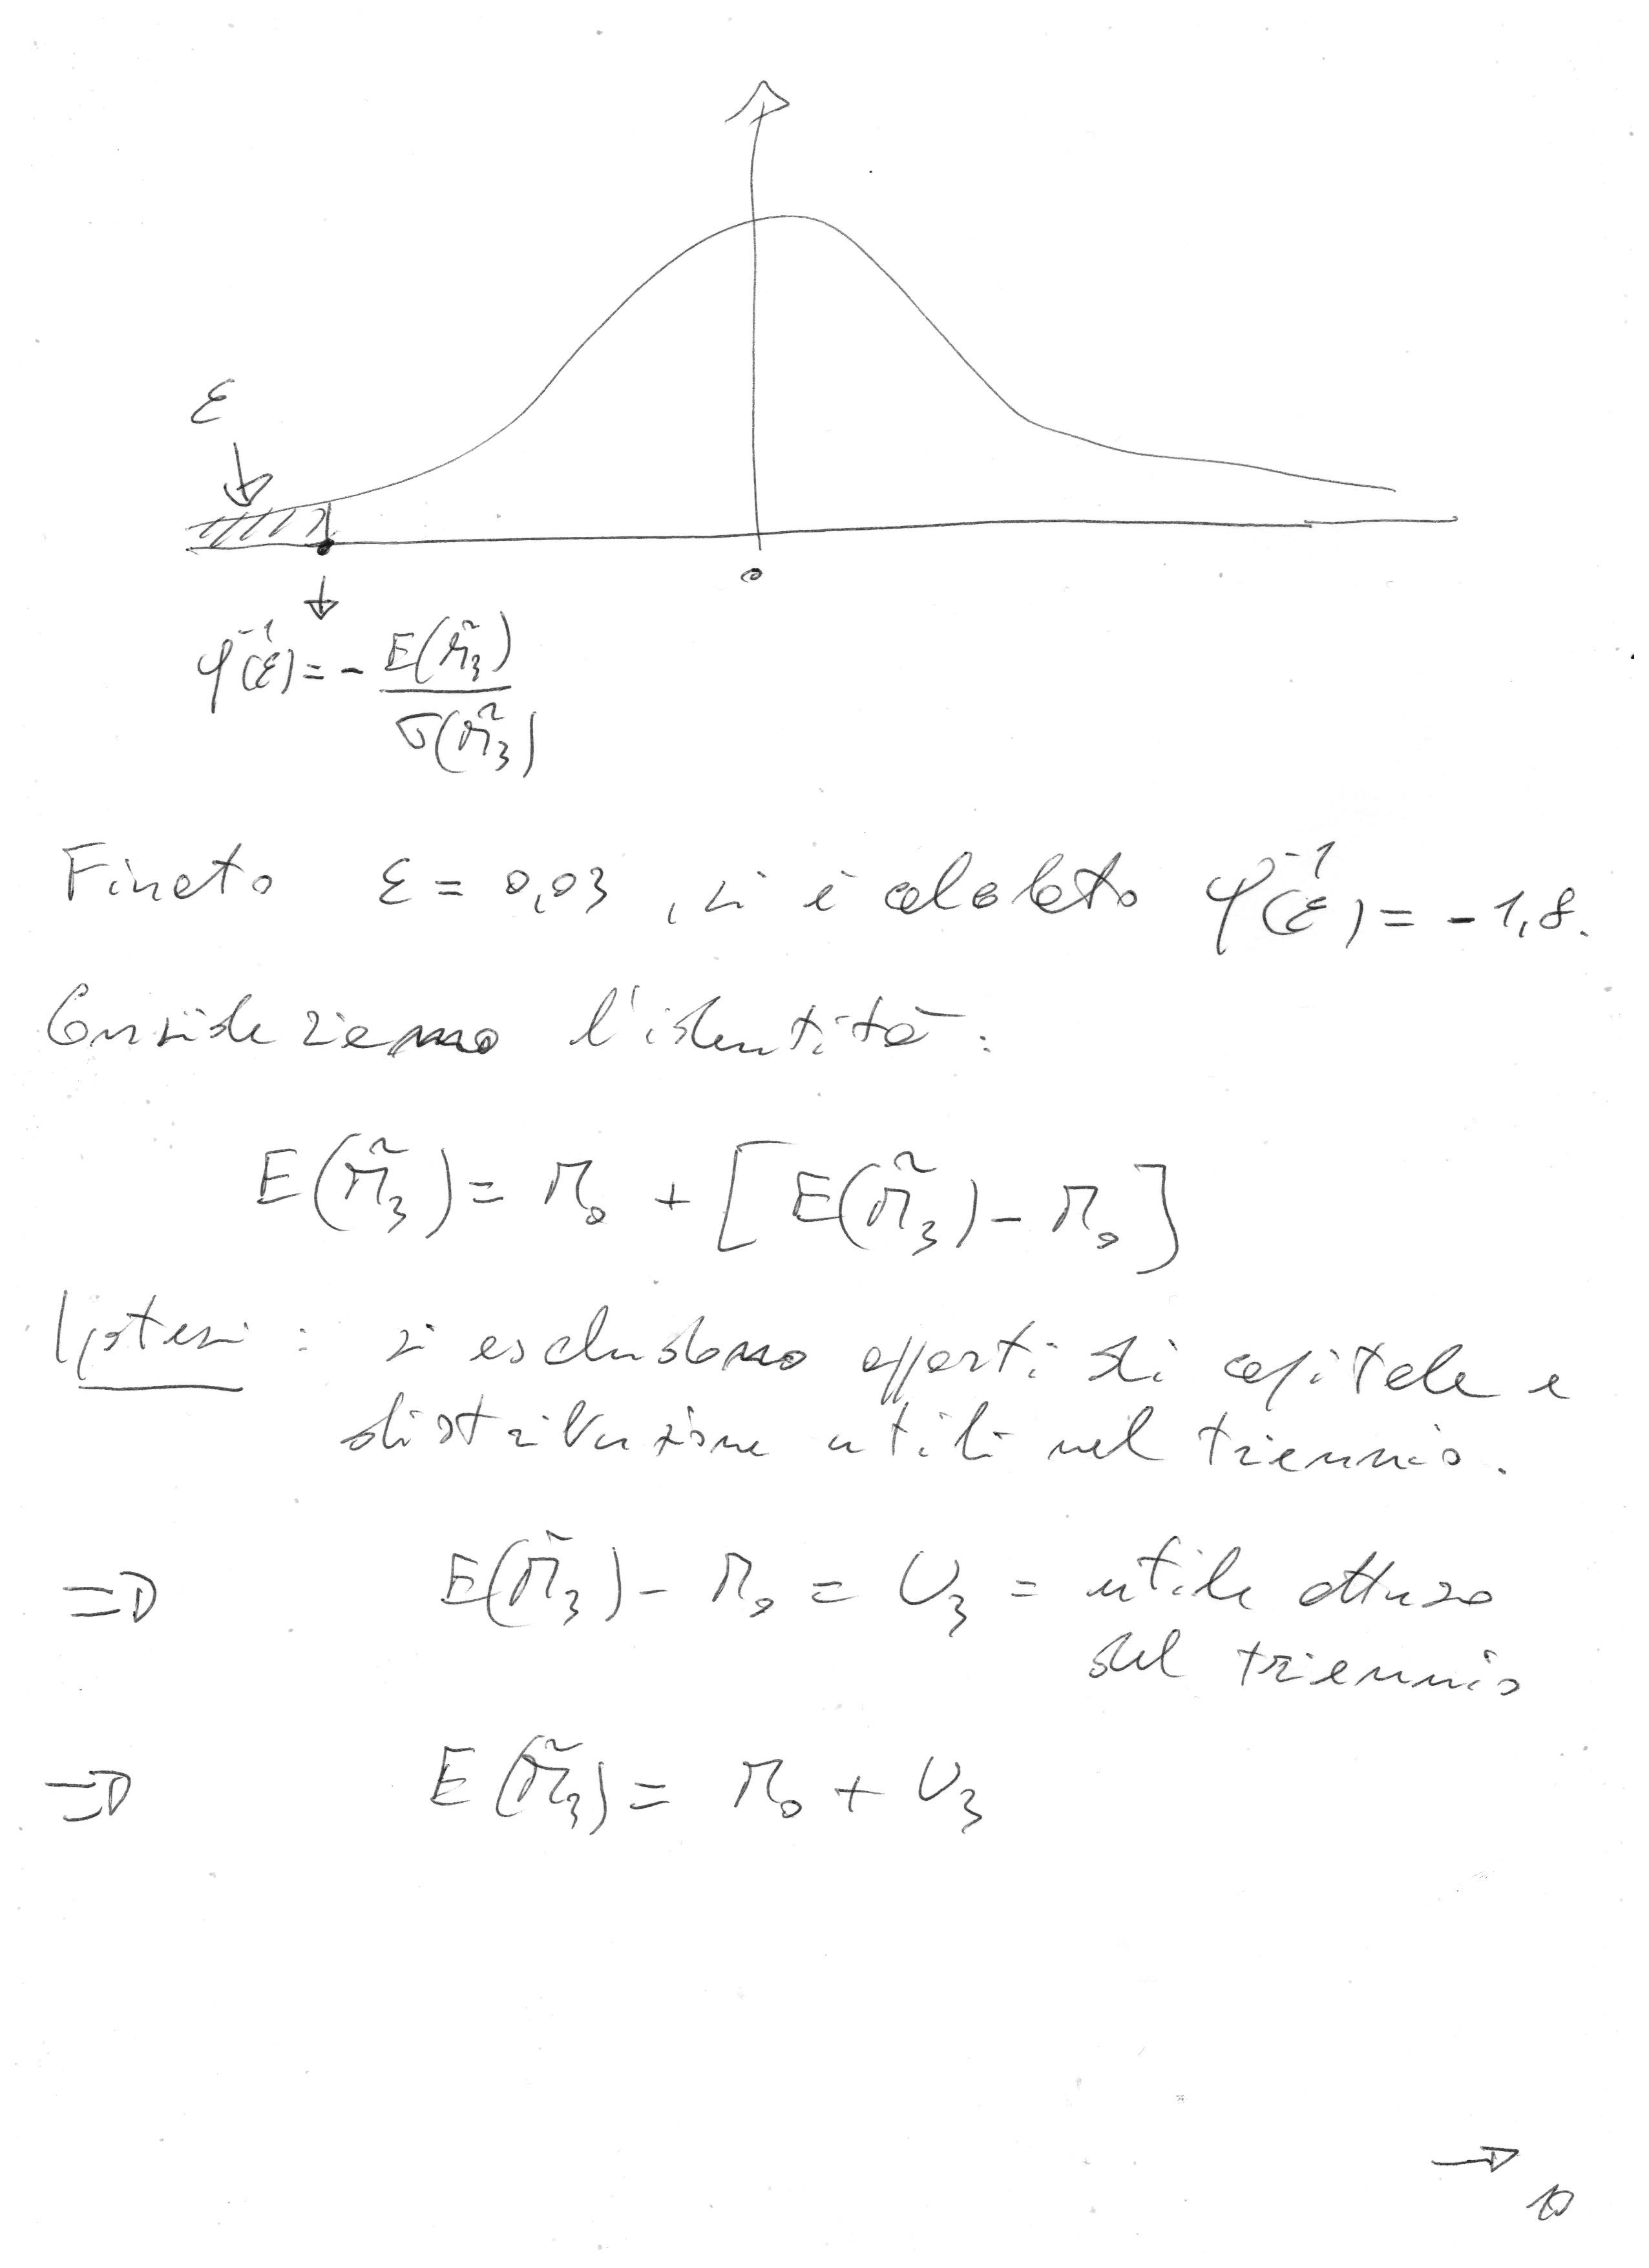 ε
0
φ⁻¹(ε) = - E(M̃₃) / σ(M̃₃)
Fissato ε = 0,03, si è calcolato φ⁻¹(ε) = - 1,8.
Consideriamo l'identità:
E(M̃₃) = M₀ + [E(M̃₃) - M₀]
Ipotesi: si escludono apporti di capitale e
distribuzione utili nel triennio.
=> E(M̃₃) - M₀ = U₃ = utile atteso
del triennio
=> E(M̃₃) = M₀ + U₃
→
10